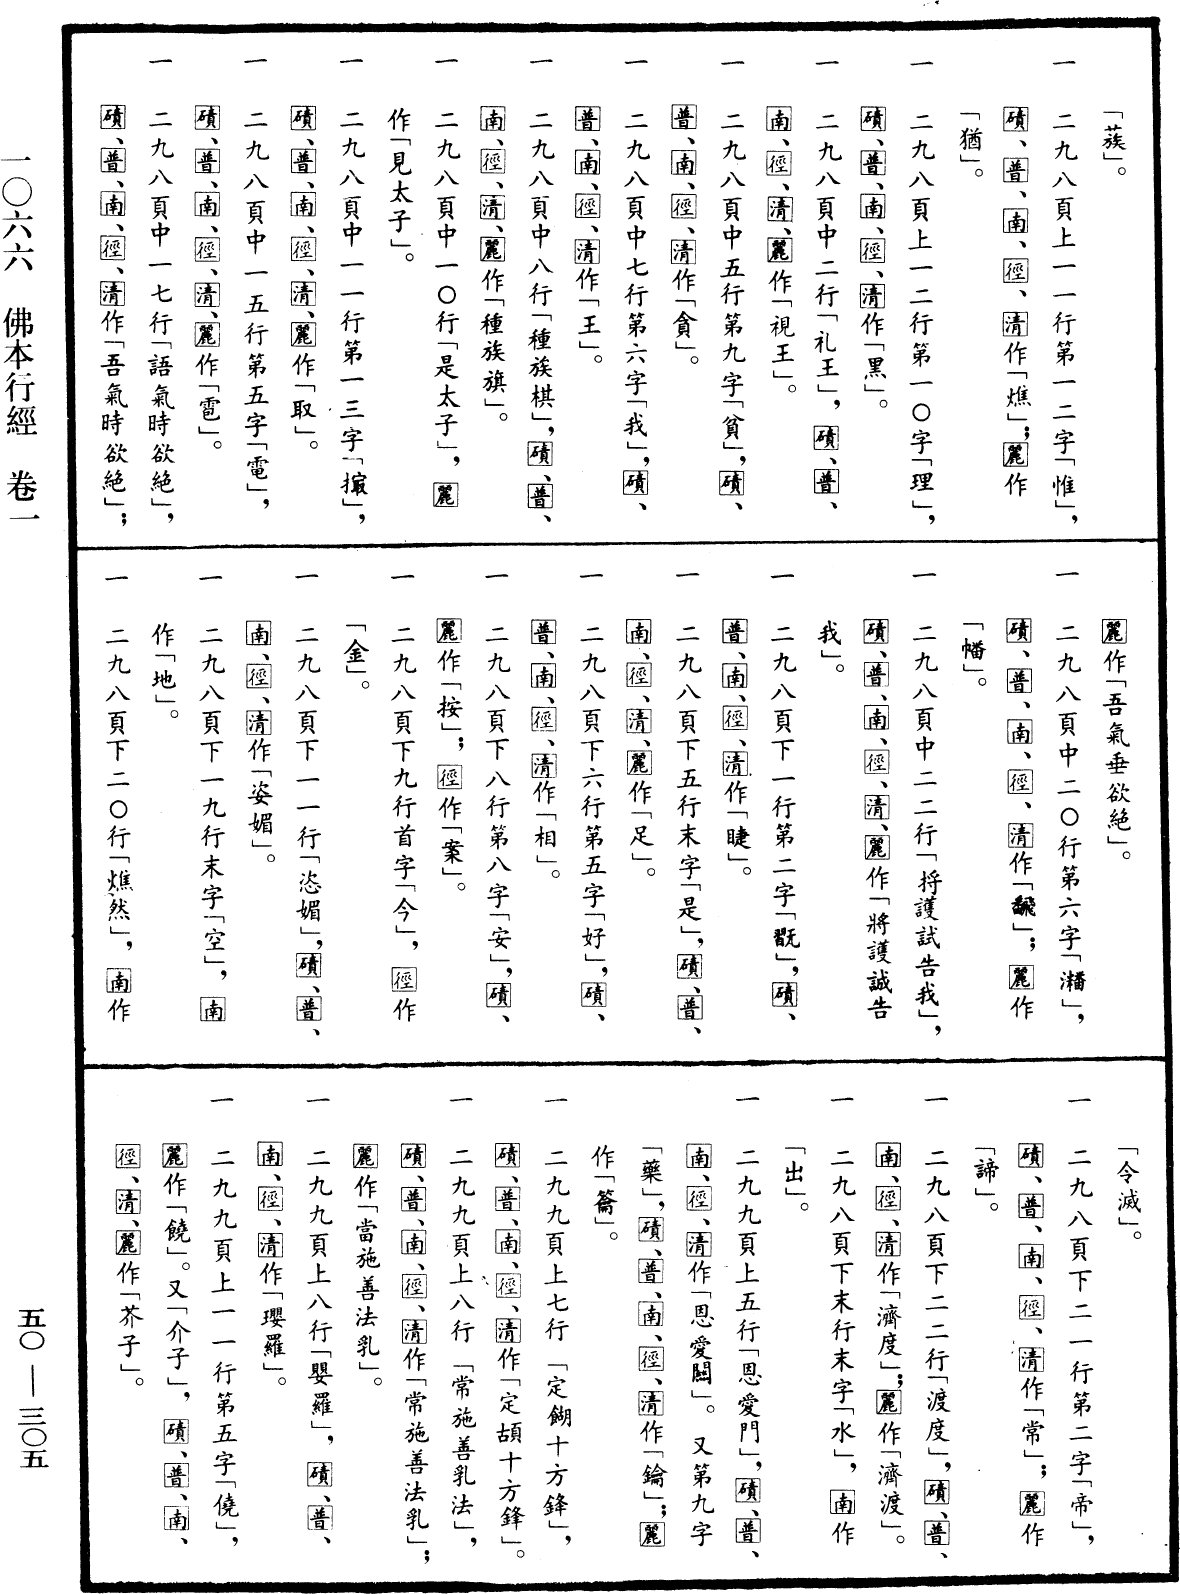 「蔟」。
一　二九八頁上一一行第一二字「惟」，
磧、普、南、徑、清作「燋」；麗作
「猶」。
一　二九八頁上一二行第一〇字「理」，
磧、普、南、徑、清作「黑」。
一　二九八頁中二行「礼王」，磧、普、
南、徑、清、麗作「視王」。
一　二九八頁中五行第九字「貧」，磧、
普、南、徑、清作「貪」。
一　二九八頁中七行第六字「我」，磧、
普、南、徑、清作「王」。
一　二九八頁中八行「種族棋」，磧、普、
南、徑、清、麗作「種族旗」。
一　二九八頁中一〇行「是太子」，麗
作「見太子」。
一　二九八頁中一一行第一三字「㨨」，
磧、普、南、徑、清、麗作「取」。
一　二九八頁中一五行第五字「電」，
磧、普、南、徑、清、麗作「雹」。
一　二九八頁中一七行「語氣時欲絶」，
磧、普、南、徑、清作「吾氣時欲絶」；
麗作「吾氣垂欲絶」。
一　二九八頁中二〇行第六字「潘」，
磧、普、南、徑、清作「飜」；麗作
「幡」。
一　二九八頁中二二行「捋護試告我」，
磧、普、南、徑、清、麗作「將護誠告
我」。
一　二九八頁下一行第二字「翫」，磧、
普、南、徑、清作「睫」。
一　二九八頁下五行末字「是」，磧、普、
南、徑、清、麗作「足」。
一　二九八頁下六行第五字「好」，磧、
普、南、徑、清作「相」。
一　二九八頁下八行第八字「安」，磧、
麗作「按」；徑作「案」。
一　二九八頁下九行首字「今」，徑作
「金」。
一　二九八頁下一一行「恣媚」，磧、普、
南、徑、清作「姿媚」。
一　二九八頁下一九行末字「空」，南
作「地」。
一　二九八頁下二〇行「燋然」，南作
「令滅」。
一　二九八頁下二一行第二字「帝」，
磧、普、南、徑、清作「常」；麗作
「諦」。
一　二九八頁下二二行「渡度」，磧、普、
南、徑、清作「濟度」；麗作「濟渡」。
一　二九八頁下末行末字「水」，南作
「出」。
一　二九九頁上五行「恩愛門」，磧、普、
南、徑、清作「恩愛闢」。又第九字
「藥」，磧、普、南、徑、清作「鑰」；麗
作「籥」。
一　二九九頁上七行「定餬十方鋒」，
磧、普、南、徑、清作「定頡十方鋒」。
一　二九九頁上八行「常施善乳法」，
磧、普、南、徑、清作「常施善法乳」；
麗作「當施善法乳」。
一　二九九頁上八行「嬰羅」，磧、普、
南、徑、清作「瓔羅」。
一　二九九頁上一一行第五字「僥」，
麗作「饒」。又「介子」，磧、普、南、
徑、清、麗作「芥子」。
一〇六六　佛本行經　卷一
五〇—三〇五